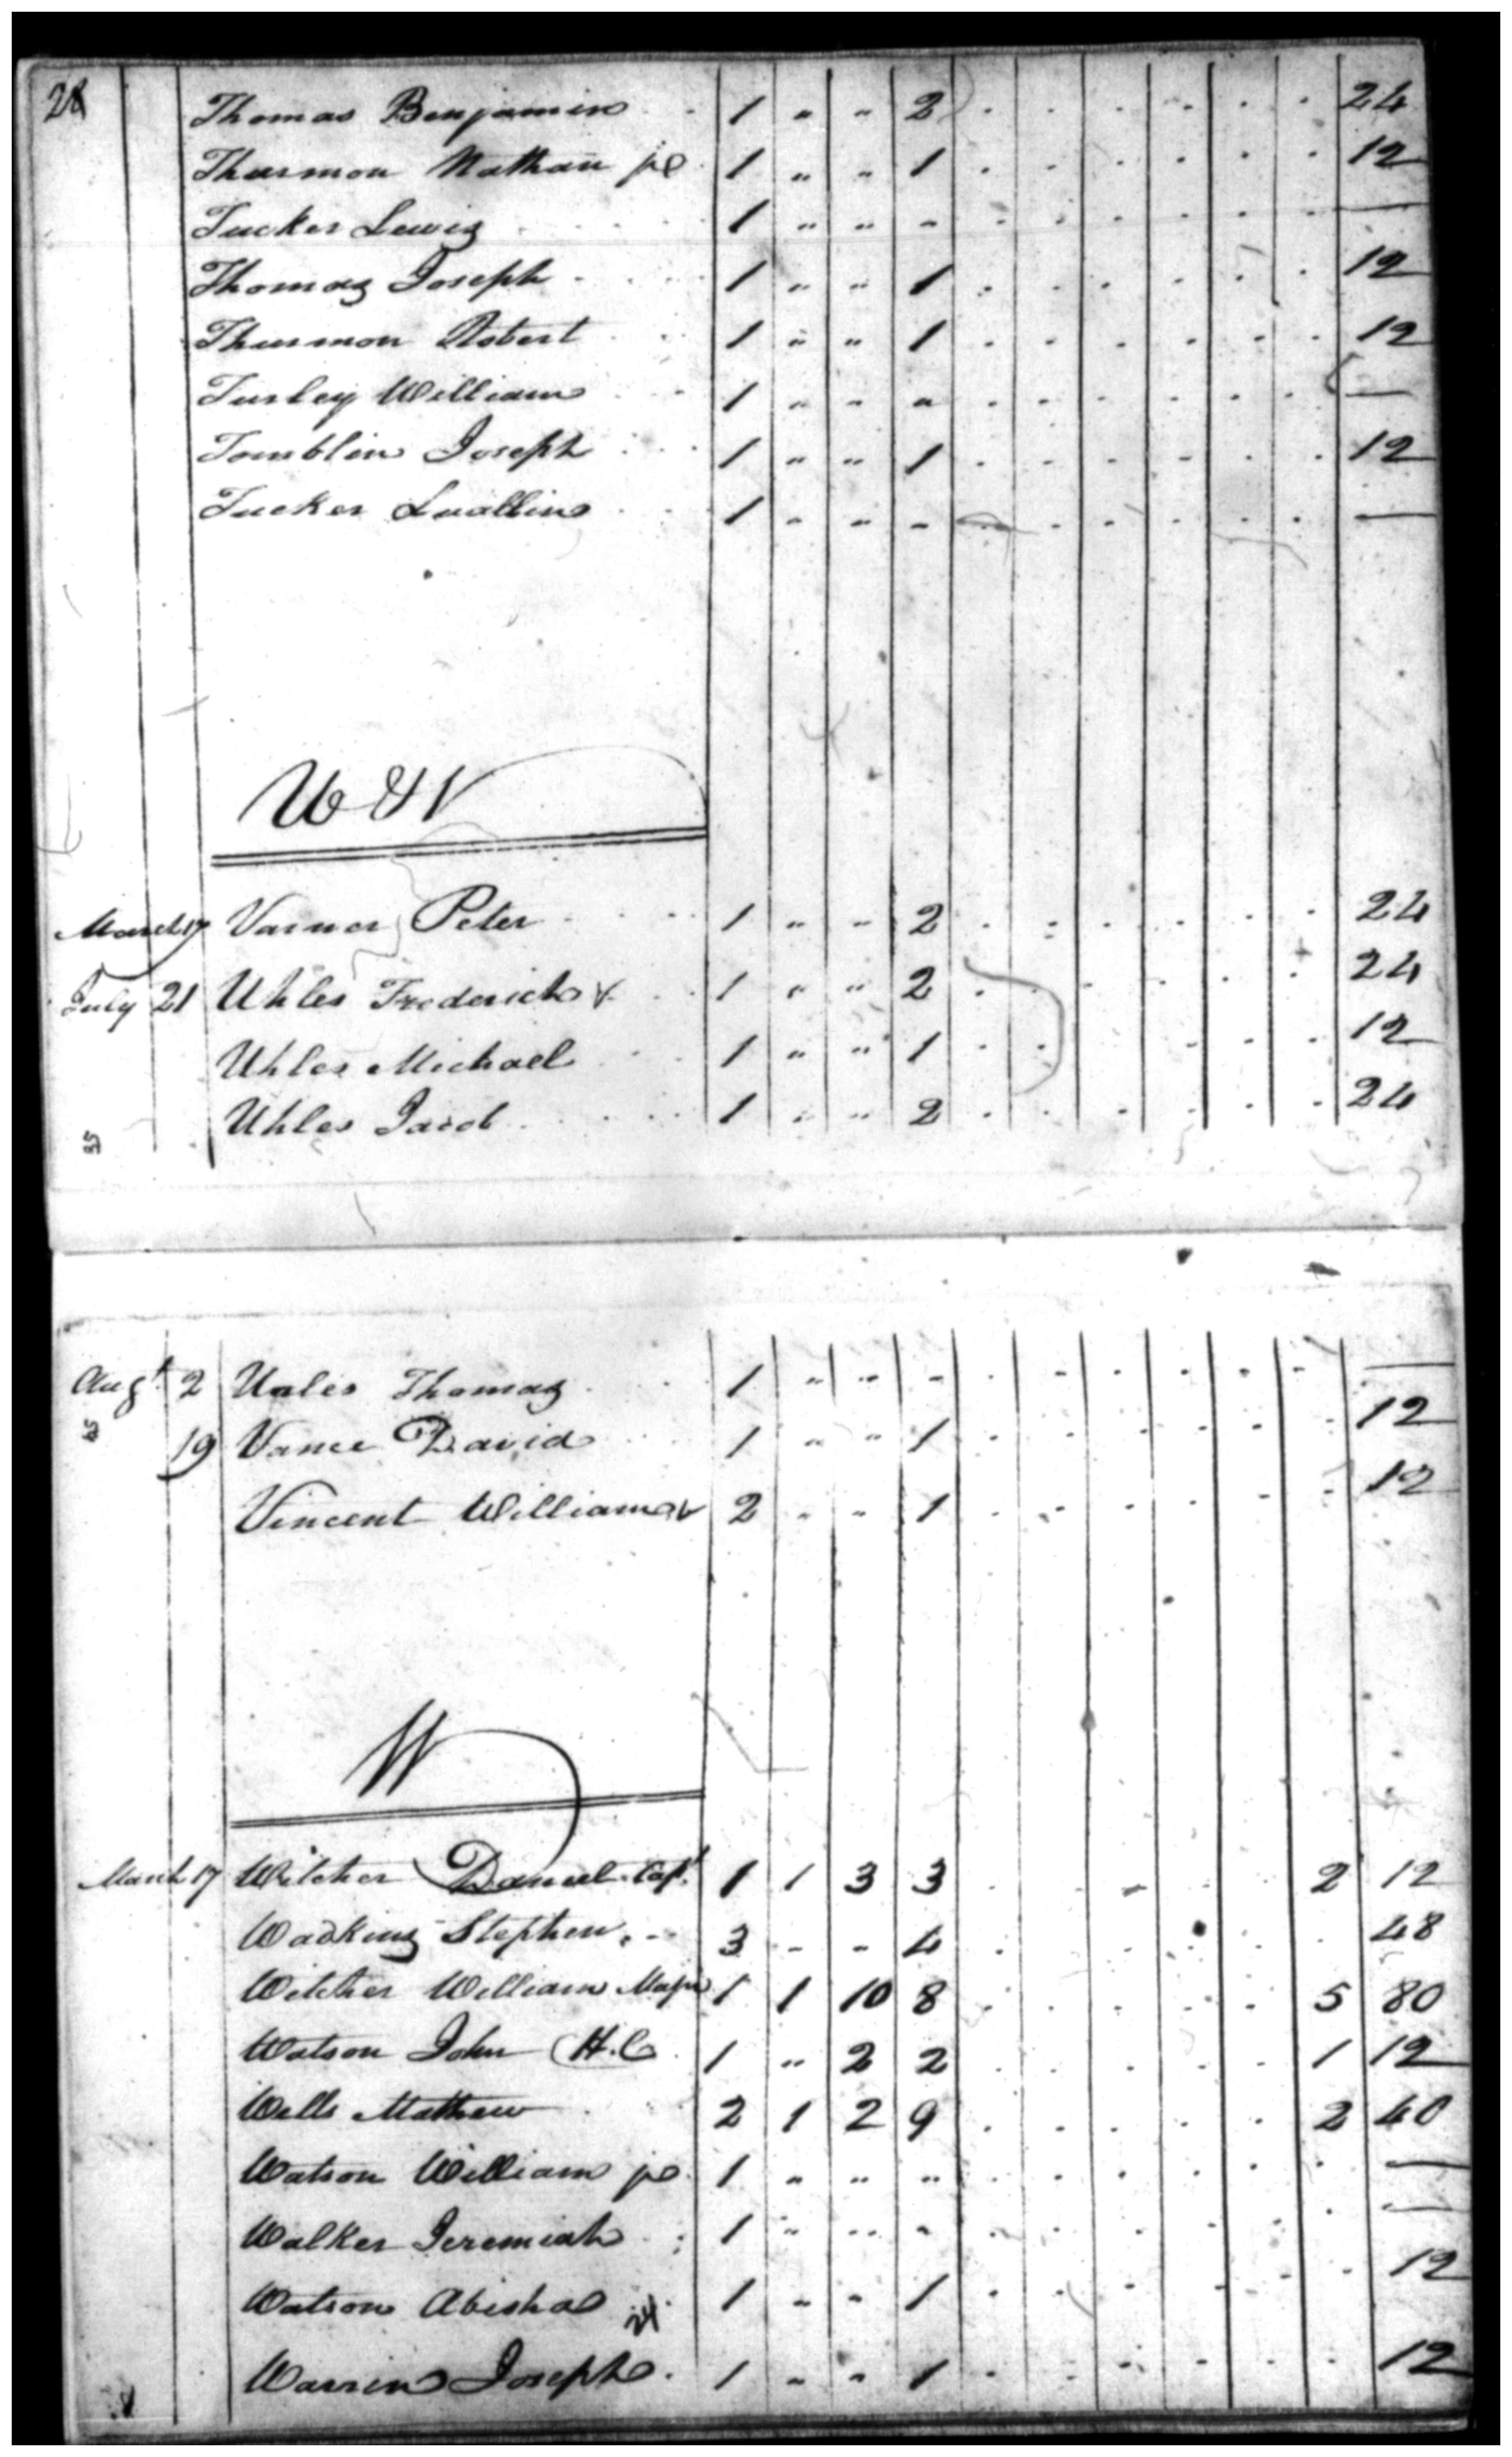 28 Thomas Benjamin 1 " " 2 . . . . . . 24
Thurmon Nathan jr 1 " " 1 . . . . . . 12
Tucker Lewis 1 " " - . . . . . . —
Thomas Joseph 1 " " 1 . . . . . . 12
Thurmon Robert 1 " " 1 . . . . . . 12
Turley William 1 " " " . . . . . . —
Tomblin Joseph 1 " " 1 . . . . . . 12
Tucker Lualline 1 " " - . . . . . . —
U & V
March 17 Varner Peter 1 " " 2 . . . . . . 24
July 21 Uhles Frederick 1 " " 2 . . . . . . 24
Uhles Michael 1 " " 1 . . . . . . 12
Uhles Jacob 1 " " 2 . . . . . . 24
35
Augt. 2 Uales Thomas 1 " " - . . . . . . —
19 Vance David 1 " " 1 . . . . . . 12
Vincent William 2 - - 1 . . . . . . 12
W
March 17 Witcher Daniel Capt. 1 1 3 3 . . . . . 2 12
Wadkins Stephen 3 - - 4 . . . . . . 48
Witcher William Majr 1 1 10 8 . . . . . 5 80
Watson John (H.C 1 " 2 2 . . . . . 1 12
Wells Mathew 2 1 2 9 . . . . . 2 40
Watson William jr 1 " " " . . . . . . —
Walker Jeremiah 1 " " " . . . . . . —
Watson Abisha 1 " " 1 . . . . . . 12
24
Warrin Joseph 1 - - 1 . . . . . . 12